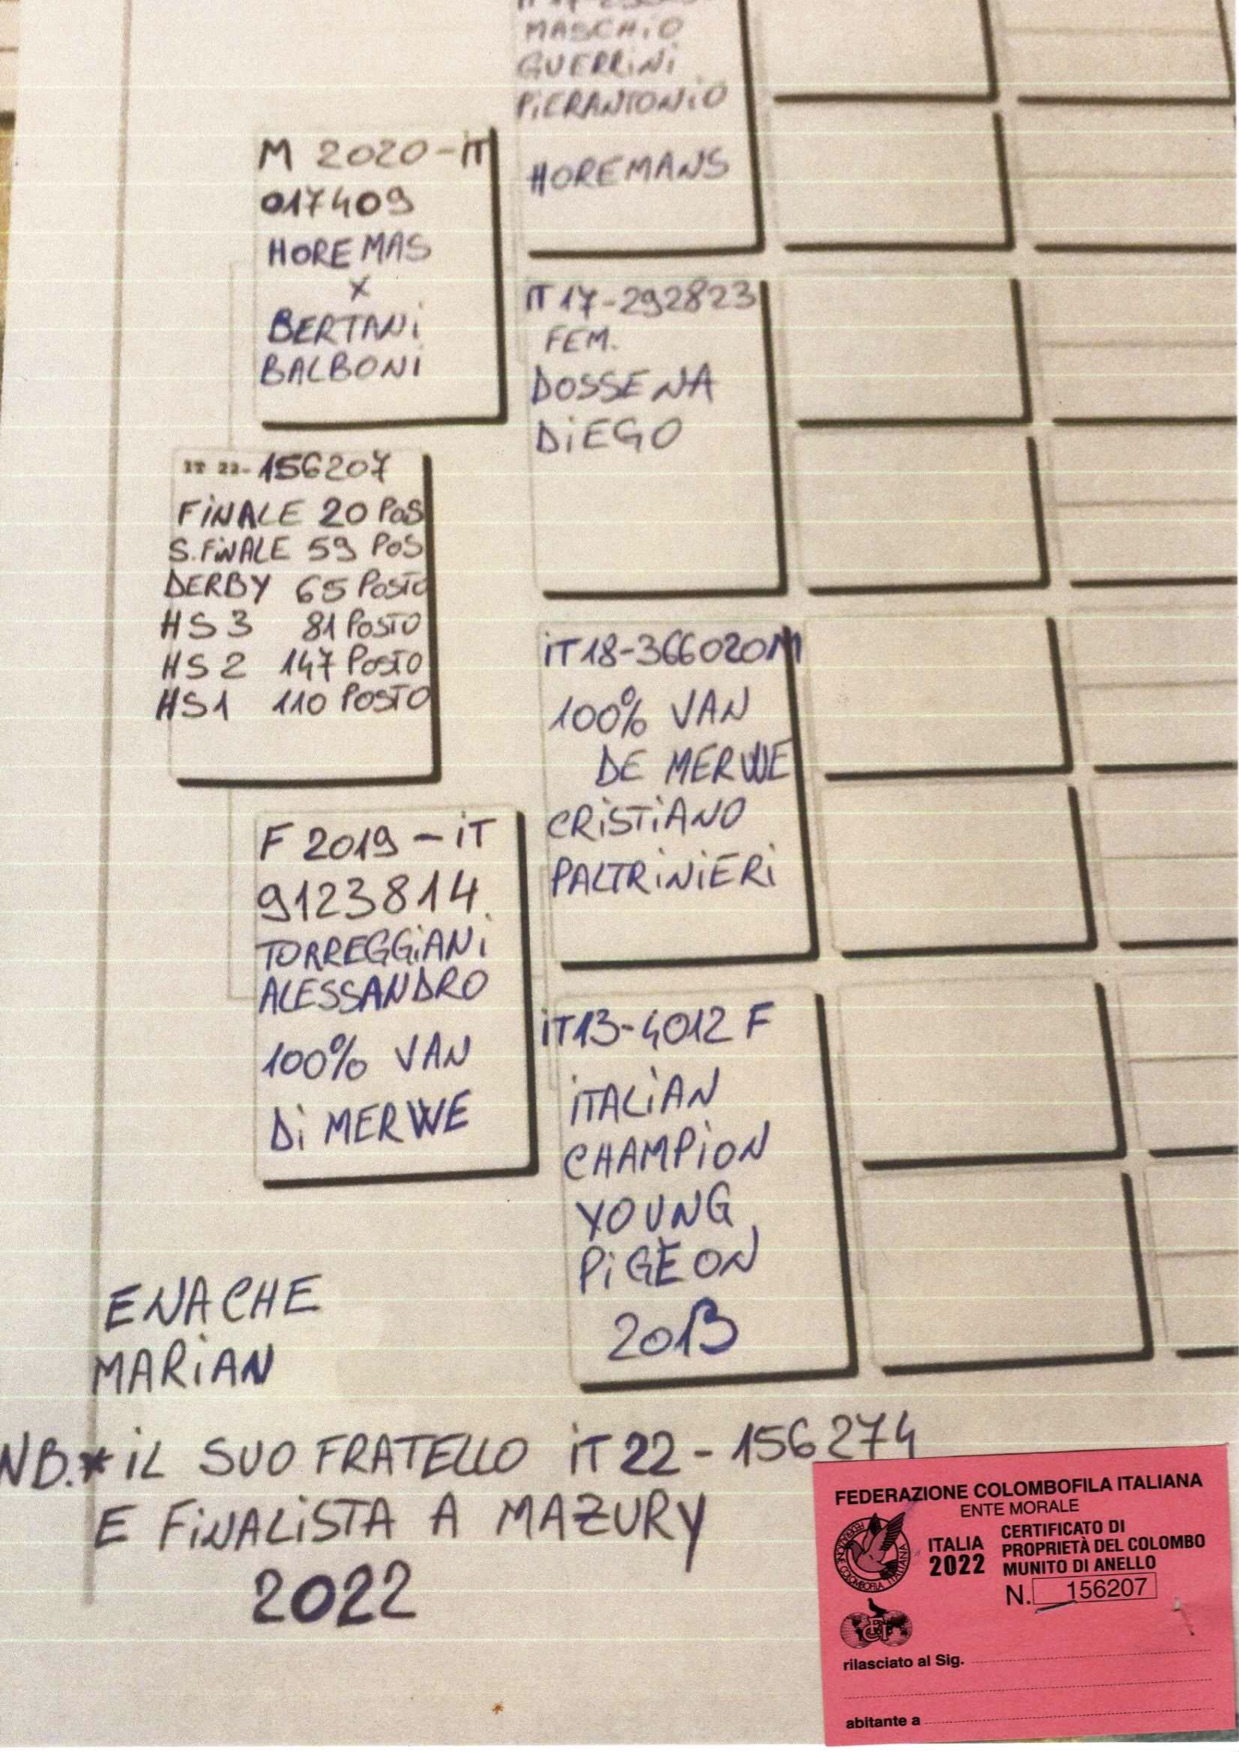 MASCHiO
GUERRiNi
PiERANTONiO
HOREMANS
M 2020-iT
017409
HOREMAS
X
BERTANi
BALBONi
iT 17-292823
FEM.
DOSSENA
DiEGO
IT 22-156207
FiNALE 20 POS
S.FiNALE 59 POS
DERBY 65 POSTO
HS3 81 POSTO
HS2 147 POSTO
HS1 110 POSTO
iT18-366020M
100% VAN
DE MERWE
CRiSTiANO
PALTRiNiERi
F 2019-iT
9123814
TORREGGiANi
ALESSANDRO
100% VAN
Di MERWE
iT13-4012 F
iTALiAN
CHAMPiON
YOUNG
PiGEON
2013
ENACHE
MARiAN
NB.* iL SUO FRATELLO iT 22-156274
E FiNALiSTA A MAZURY
2022
FEDERAZIONE COLOMBOFILA ITALIANA
ENTE MORALE
ITALIA
2022
CERTIFICATO DI
PROPRIETÀ DEL COLOMBO
MUNITO DI ANELLO
N. 156207
FEDERAZIONE COLOMBOFILA ITALIANA
FCI
rilasciato al Sig.
abitante a